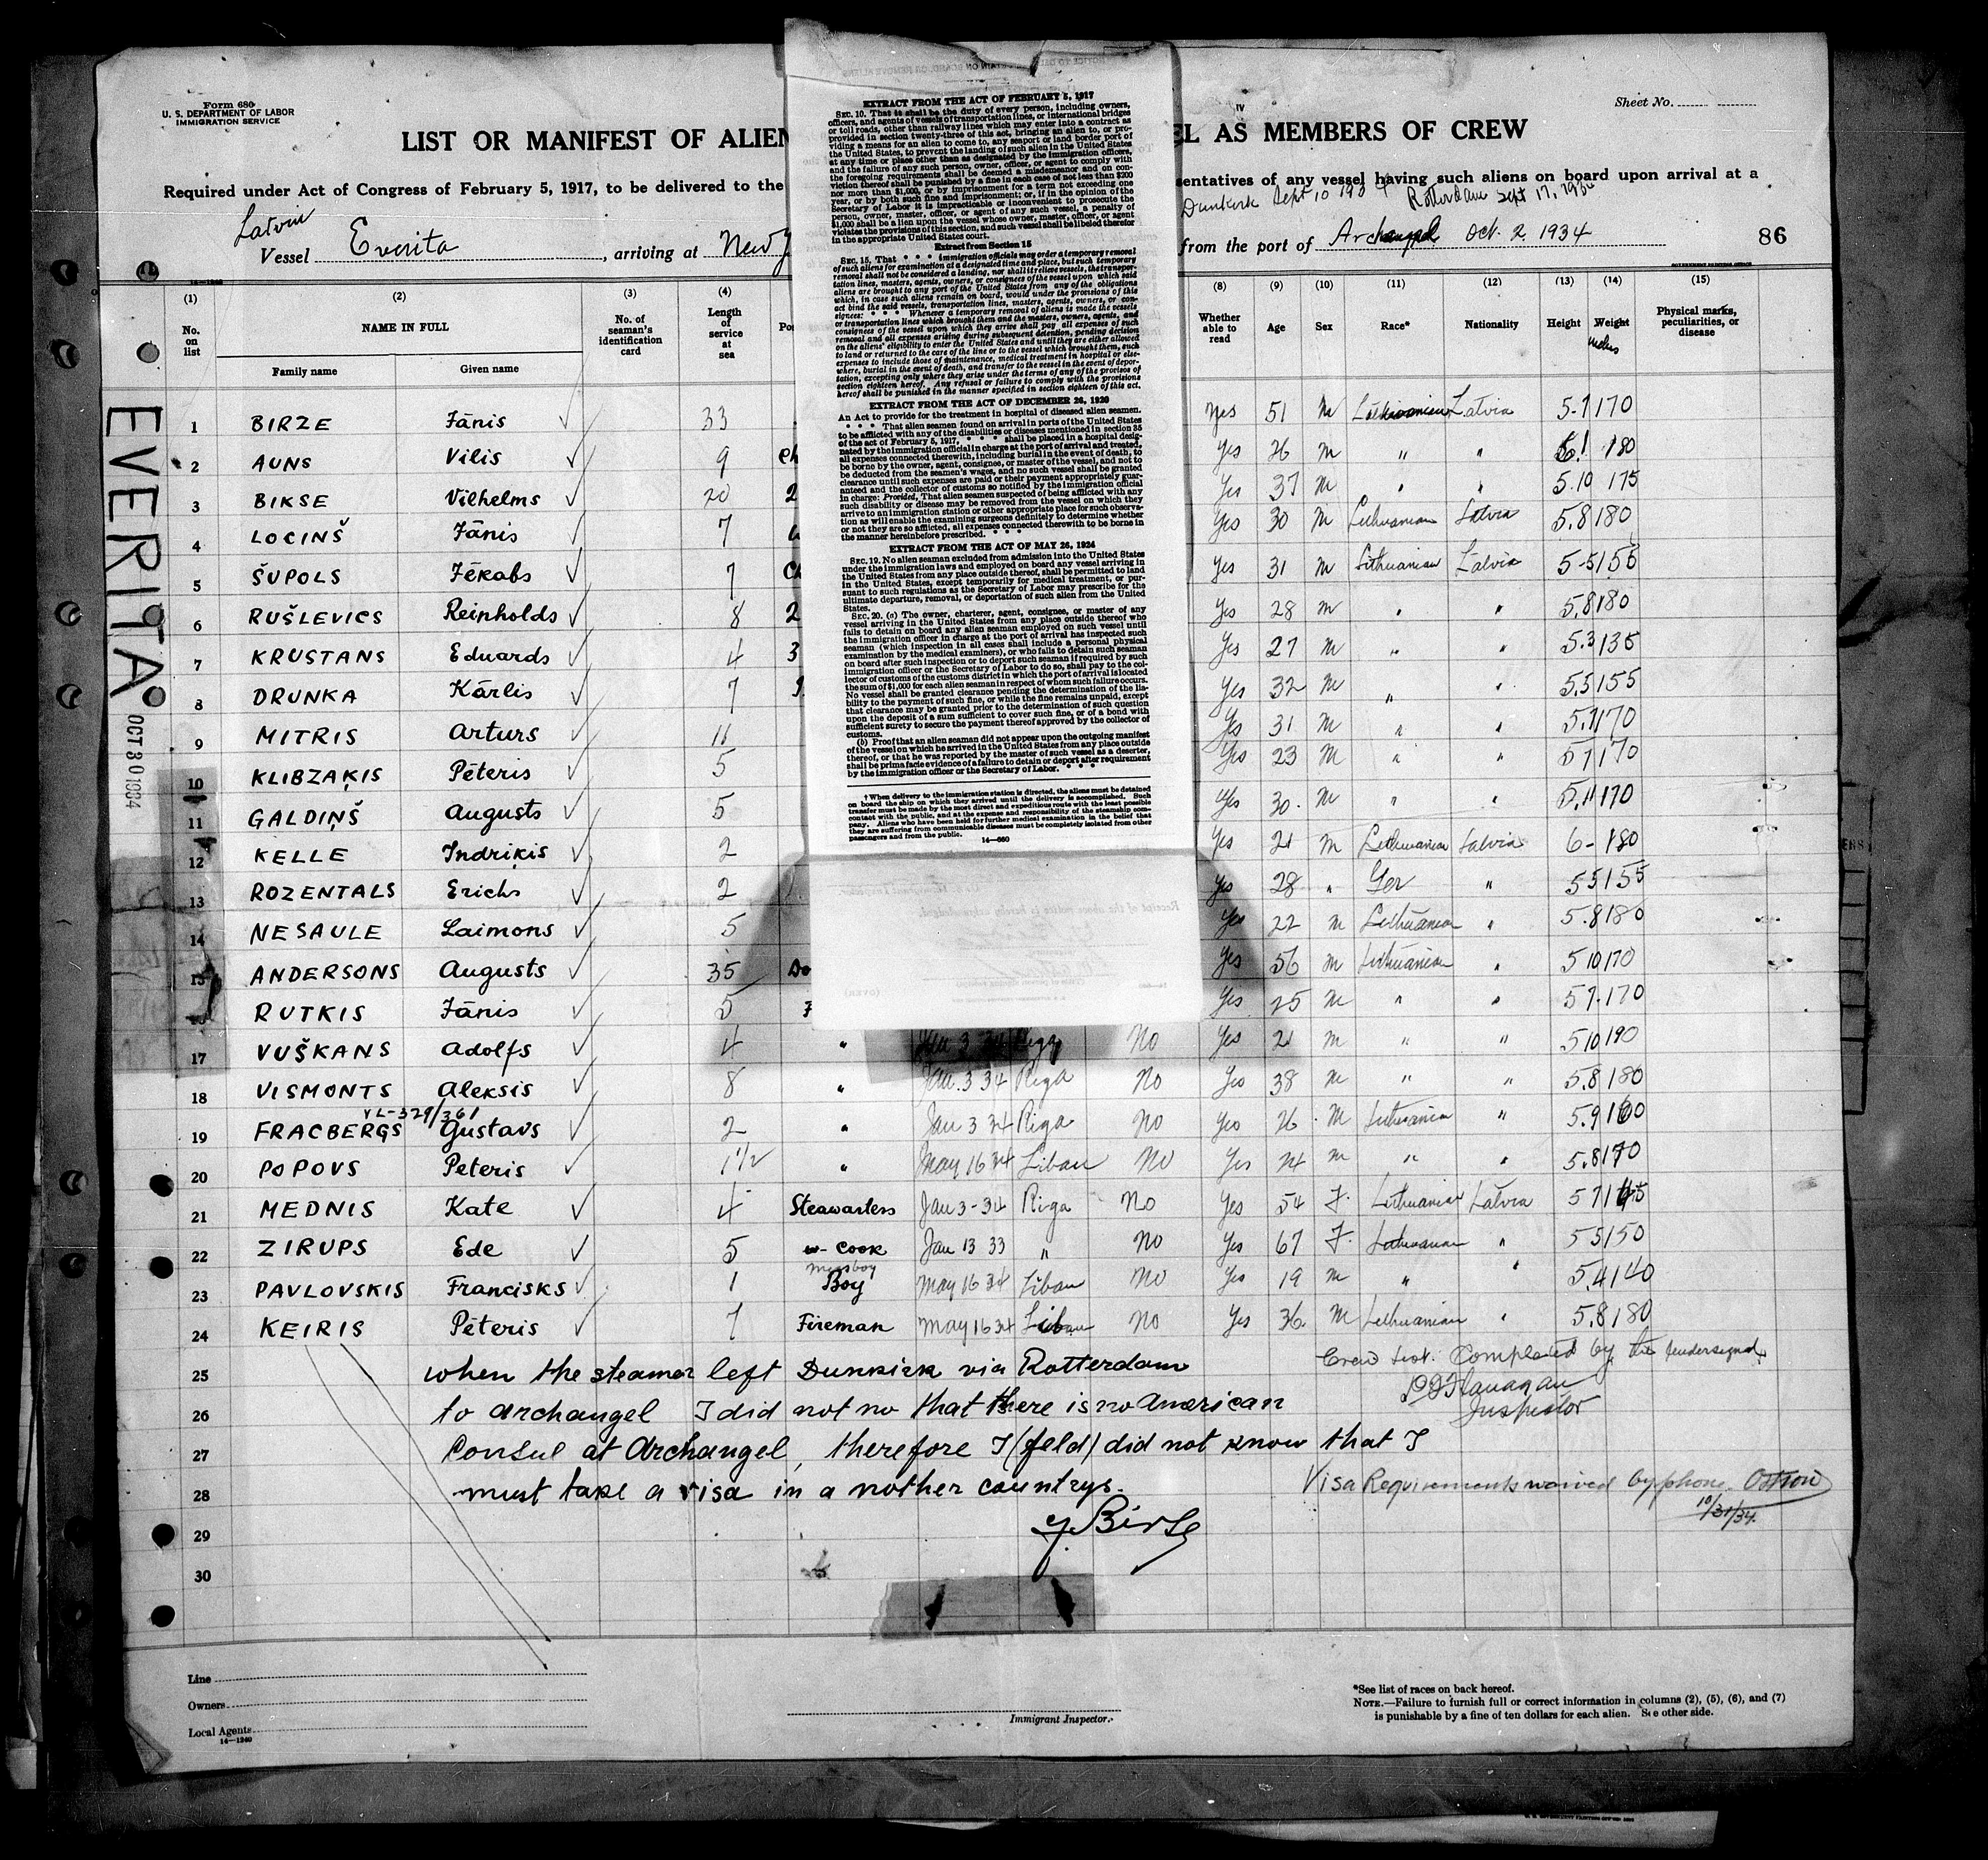 Form 680
U. S. DEPARTMENT OF LABOR
IMMIGRATION SERVICE
Sheet No.
LIST OR MANIFEST OF ALIEN
EL AS MEMBERS OF CREW
Required under Act of Congress of February 5, 1917, to be delivered to the
sentatives of any vessel having such aliens on board upon arrival at a
Dunkirk Sept 10 Rotterdam Sept 17, 1934
Latvin
Vessel Everita, arriving at New Y
from the port of Archangel Oct. 2 1934
86
EXTRACT FROM THE ACT OF FEBRUARY 5, 1917
SEC. 10. That it shall be the duty of every person, including owners,
officers, and agents of vessels of transportation lines, or international bridges
or toll roads, other than railway lines which may enter into a contract as
provided in section twenty-three of this act, bringing an alien to, or pro-
viding a means for an alien to come to, any seaport or land border port of
the United States, to prevent the landing of such alien in the United States
at any time or place other than as designated by the immigration officers,
and the failure of any such person, owner, officer, or agent to comply with
the foregoing requirements shall be deemed a misdemeanor and on con-
viction thereof shall be punished by a fine in each case of not less than $200
nor more than $1,000, or by imprisonment for a term not exceeding one
year, or by both such fine and imprisonment; or, if in the opinion of the
Secretary of Labor it is impracticable or inconvenient to prosecute the
person, owner, master, officer, or agent of any such vessel, a penalty of
$1,000 shall be a lien upon the vessel whose owner, master, officer, or agent
violates the provisions of this section, and such vessel shall be libeled therefor
in the appropriate United States court.
Extract from Section 15
SEC. 15. That * * * immigration officials may order a temporary removal
of such aliens for examination at a designated time and place, but such temporary
removal shall not be considered a landing, nor shall it relieve vessels, the transpor-
tation lines, masters, agents, owners, or consignees of the vessel upon which said
aliens are brought to any port of the United States from any of the obligations
which, in case such aliens remain on board, would under the provisions of this
act bind the said vessels, transportation lines, masters, agents, owners, or con-
signees: * * * Whenever a temporary removal of aliens is made the vessels
or transportation lines which brought them and the masters, owners, agents, and
consignees of the vessel upon which they arrive shall pay all expenses of such
removal and all expenses arising during subsequent detention, pending decision
on the aliens' eligibility to enter the United States and until they are either allowed
to land or returned to the care of the line or to the vessel which brought them, such
expenses to include those of maintenance, medical treatment in hospital or else-
where, burial in the event of death, and transfer to the vessel in the event of depor-
tation, excepting only where they arise under the terms of any of the provisos of
section eighteen hereof. Any refusal or failure to comply with the provisions
hereof shall be punished in the manner specified in section eighteen of this act.
EXTRACT FROM THE ACT OF DECEMBER 26, 1920
An Act to provide for the treatment in hospital of diseased alien seamen.
* * * That alien seamen found on arrival in ports of the United States
to be afflicted with any of the disabilities or diseases mentioned in section 35
of the act of February 5, 1917, * * * shall be placed in a hospital desig-
nated by the immigration official in charge at the port of arrival and treated,
all expenses connected therewith, including burial in the event of death, to
be borne by the owner, agent, consignee, or master of the vessel, and not to
be deducted from the seamen's wages, and no such vessel shall be granted
clearance until such expenses are paid or their payment appropriately guar-
anteed and the collector of customs so notified by the immigration official
in charge: Provided, That alien seamen suspected of being afflicted with any
such disability or disease may be removed from the vessel on which they
arrive to an immigration station or other appropriate place for such observa-
tion as will enable the examining surgeons definitely to determine whether
or not they are so afflicted, all expenses connected therewith to be borne in
the manner hereinbefore prescribed. * * *
EXTRACT FROM THE ACT OF MAY 26, 1924
SEC. 19. No alien seaman excluded from admission into the United States
under the immigration laws and employed on board any vessel arriving in
the United States from any place outside thereof, shall be permitted to land
in the United States, except temporarily for medical treatment, or pur-
suant to such regulations as the Secretary of Labor may prescribe for the
ultimate departure, removal, or deportation of such alien from the United
States.
SEC. 20. (a) The owner, charterer, agent, consignee, or master of any
vessel arriving in the United States from any place outside thereof who
fails to detain on board any alien seaman employed on such vessel until
the immigration officer in charge at the port of arrival has inspected such
seaman (which inspection in all cases shall include a personal physical
examination by the medical examiners), or who fails to detain such seaman
on board after such inspection or to deport such seaman if required by such
immigration officer or the Secretary of Labor to do so, shall pay to the col-
lector of customs of the customs district in which the port of arrival is located
the sum of $1,000 for each alien seaman in respect of whom such failure occurs.
No vessel shall be granted clearance pending the determination of the lia-
bility to the payment of such fine, or while the fine remains unpaid, except
that clearance may be granted prior to the determination of such question
upon the deposit of a sum sufficient to cover such fine, or of a bond with
sufficient surety to secure the payment thereof approved by the collector of
customs.
(b) Proof that an alien seaman did not appear upon the outgoing manifest
of the vessel on which he arrived in the United States from any place outside
thereof, or that he was reported by the master of such vessel as a deserter,
shall be prima facie evidence of a failure to detain or deport after requirement
by the immigration officer or the Secretary of Labor. * * *
† When delivery to the immigration station is directed, the aliens must be detained
on board the ship on which they arrived until the delivery is accomplished. Such
transfer must be made by the most direct and expeditious route with the least possible
contact with the public, and at the expense and responsibility of the steamship com-
pany. Aliens who have been held for further medical examination in the belief that
they are suffering from communicable diseases must be completely isolated from other
passengers and from the public.
14—680
(1) (2) (3) (4) (8) (9) (10) (11) (12) (13) (14) (15)
No. on list
NAME IN FULL
Family name Given name
No. of seaman's identification card
Length of service at sea
Po
Whether able to read
Age Sex Race* Nationality Height Weight
Physical marks, peculiarities, or disease
EVERITA
OCT 30 1934
1 BIRZE Jānis 33 Yes 51 M Lithuanian Latvia 5-7 170
2 AUNS Vilis 9 Ch Yes 26 M " " 6.1 180
3 BIKSE Vilhelms 20 2 Yes 37 M " " 5.10 175
4 LOCINŠ Jānis 7 Yes 30 M Lithuanian Latvia 5.8 180
5 ŠUPOLS Jēkabs 7 Yes 31 M Lithuanian Latvia 5-5 155
6 RUŠLEVICS Reinholds 8 2 Yes 28 M " " 5.8 180
7 KRUSTANS Eduards 4 3 Yes 27 M " " 5.3 135
8 DRUNKA Kārlis 7 Yes 32 M " " 5.5 155
9 MITRIS Arturs 11 Yes 31 M " " 5.7 170
10 KLIBZAĶIS Pēteris 5 Yes 23 M " " 5 7 170
11 GALDIŅŠ Augusts 5 Yes 30 M " " 5.11 170
12 KELLE Indriķis 2 Yes 21 M Lithuanian Latvia 6- 180
13 ROZENTALS Erichs 2 Yes 28 " Ger " 5 5 155
14 NESAULE Laimons 5 Yes 22 M Lithuanian " 5.8 180
15 ANDERSONS Augusts 35 Do Yes 56 M Lithuanian " 5 10 170
RUTKIS Jānis 5 F Yes 25 M " " 5 7 170
17 VUŠKANS Adolfs 4 " Jan 3 34 Riga No Yes 21 M " " 5 10 190
18 VISMONTS Aleksis 8 " Jan. 3 34 Riga No Yes 38 M " " 5.8 180
VL-329/361
19 FRACBERGS Gustavs 2 " Jan 3 34 Riga No Yes 26 M Lithuanian " 5.9 160
20 POPOVS Peteris 1 1/2 " May 16 34 Libau No Yes 24 M " " 5.8 170
21 MEDNIS Kate 4 Steawarters Jan 3-34 Riga No Yes 54 F. Lithuanian Latvia 5 7
22 ZIRUPS Ede 5 Cook Jan 13 33 " No Yes 67 F. Lithuanian " 5 5 150
messboy
23 PAVLOVSKIS Francisks 1 Boy May 16 34 Libau No Yes 19 M " " 5.4 140
24 KEIRIS Pēteris 7 Fireman May 16 34 Libau No Yes 36 M Lithuanian " 5.8 180
25 when the steamer left Dunkirk via Rotterdam
Crew List. Completed by the undersigned
26 to archangel I did not no that there is no American
P J Flanagan
Inspector
27 Consul at Archangel, therefore I (feld) did not know that I
28 must take a visa in a nother countrys.
Visa Requirements waived by phone.
10/31/34.
29 J. Birze
30
Line
Owners
Local Agents
14—1240
Immigrant Inspector.
*See list of races on back hereof.
NOTE.—Failure to furnish full or correct information in columns (2), (5), (6), and (7)
is punishable by a fine of ten dollars for each alien. See other side.